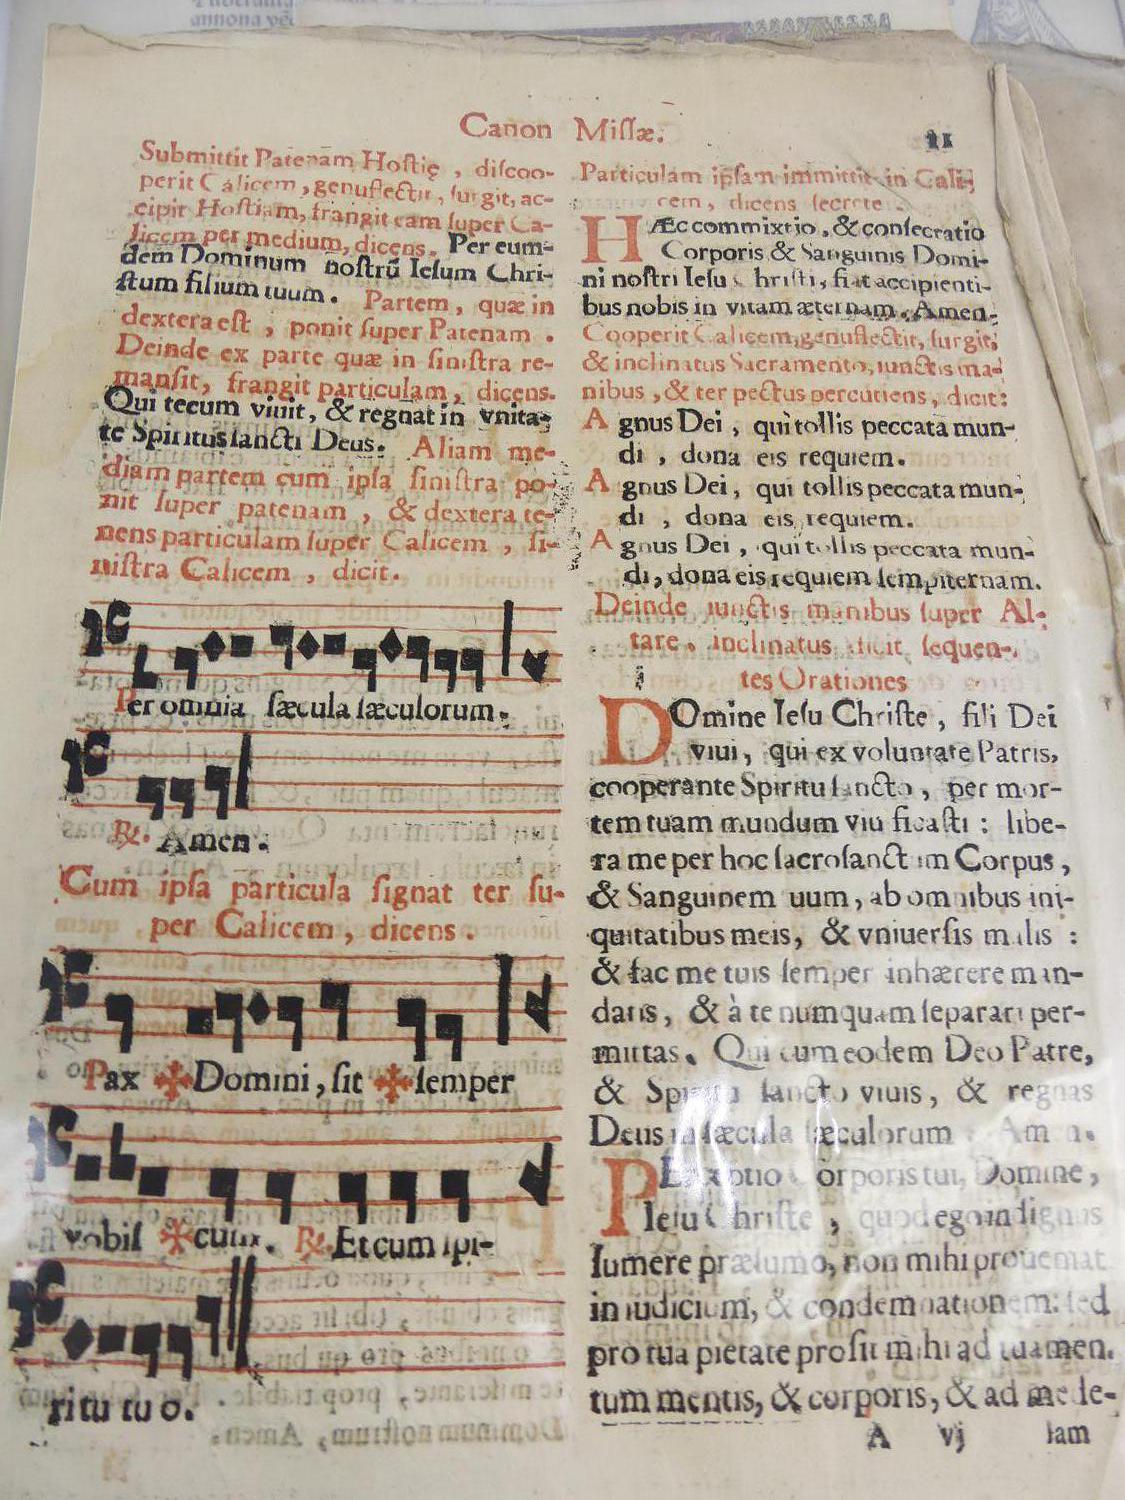 annona
Canon Missæ.
Submittit Patenam Hostię, discoo-
perit Calicem, genuflectit, surgit, ac-
cipit Hostiam, frangit eam super Ca-
licem per medium, dicens. Per eum-
dem Dominum nostrũ Iesum Chri-
stum filium tuum. Partem, quæ in
dextera est, ponit super Patenam.
Deinde ex parte quæ in sinistra re-
mansit, frangit particulam, dicens.
Qui tecum viuit, & regnat in vnita-
te Spiritus sancti Deus. Aliam me-
diam partem cum ipsa sinistra po-
nit super patenam, & dextera te-
nens particulam super Calicem, si-
nistra Calicem, dicit.
Per omnia sæcula sæculorum.
℟. Amen.
Cum ipsa particula signat ter su-
per Calicem, dicens.
Pax ✠ Domini, sit ✠ semper
vobis ✠ cum. ℟. Et cum spi-
ritu tuo.
Particulam ipsam immittit in Cali-
cem, dicens secrete.
HÆc commixtio, & consecratio
Corporis & Sanguinis Domi-
ni nostri Iesu Christi, fiat accipienti-
bus nobis in vitam æternam. Amen.
Cooperit Calicem, genuflectit, surgit,
& inclinatus Sacramento, iunctis ma-
nibus, & ter pectus percutiens, dicit:
Agnus Dei, qui tollis peccata mun-
di, dona eis requiem.
Agnus Dei, qui tollis peccata mun-
di, dona eis requiem.
Agnus Dei, qui tollis peccata mun-
di, dona eis requiem sempiternam.
Deinde iunctis manibus super Al-
tare, inclinatus dicit sequen-
tes Orationes
DOmine Iesu Christe, fili Dei
viui, qui ex voluntate Patris,
cooperante Spiritu sancto, per mor-
tem tuam mundum viuificasti: libe-
ra me per hoc sacrosanctum Corpus,
& Sanguinem tuum, ab omnibus ini-
quitatibus meis, & vniuersis malis:
& fac me tuis semper inhærere man-
datis, & à te numquam separari per-
mittas. Qui cum eodem Deo Patre,
& Spiritu sancto viuis, & regnas
Deus in sæcula sæculorum Amen.
PErceptio Corporis tui, Domine,
Iesu Christe, quod ego indignus
sumere præsumo, non mihi proueniat
in iudicium, & condemnationem: sed
pro tua pietate prosit mihi ad tutamen-
tum mentis, & corporis, & ad me de-
A vj lam